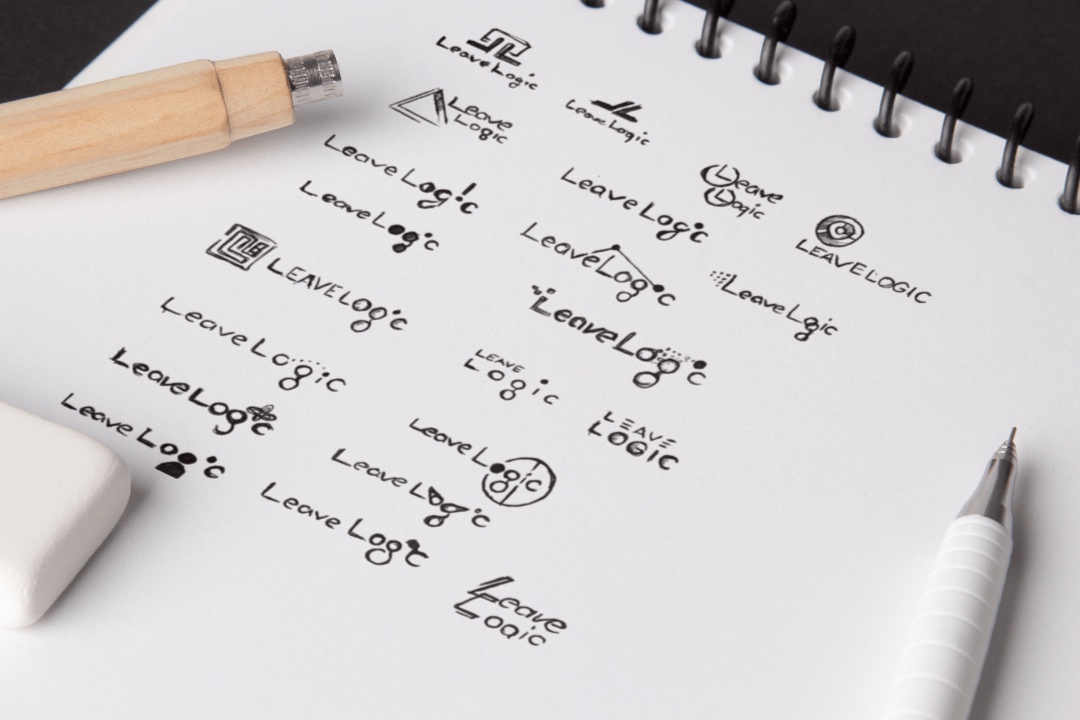 Leave Logic
Leave
Logic
LeaveLogic
LeaveLog!c
LeaveLogic
LeaveLogic
Leave
Logic
LEAVELOGIC
LeaveLogic
LeaveLogic
LEAVELOgic
LeaveLogic
LeaveLogic
LEAVE
Logic
LeaveLogic
LEAVE
LOGiC
Leave Logic
LeaveLogic
Leave Logic
Leave Logic
Leave
Logic